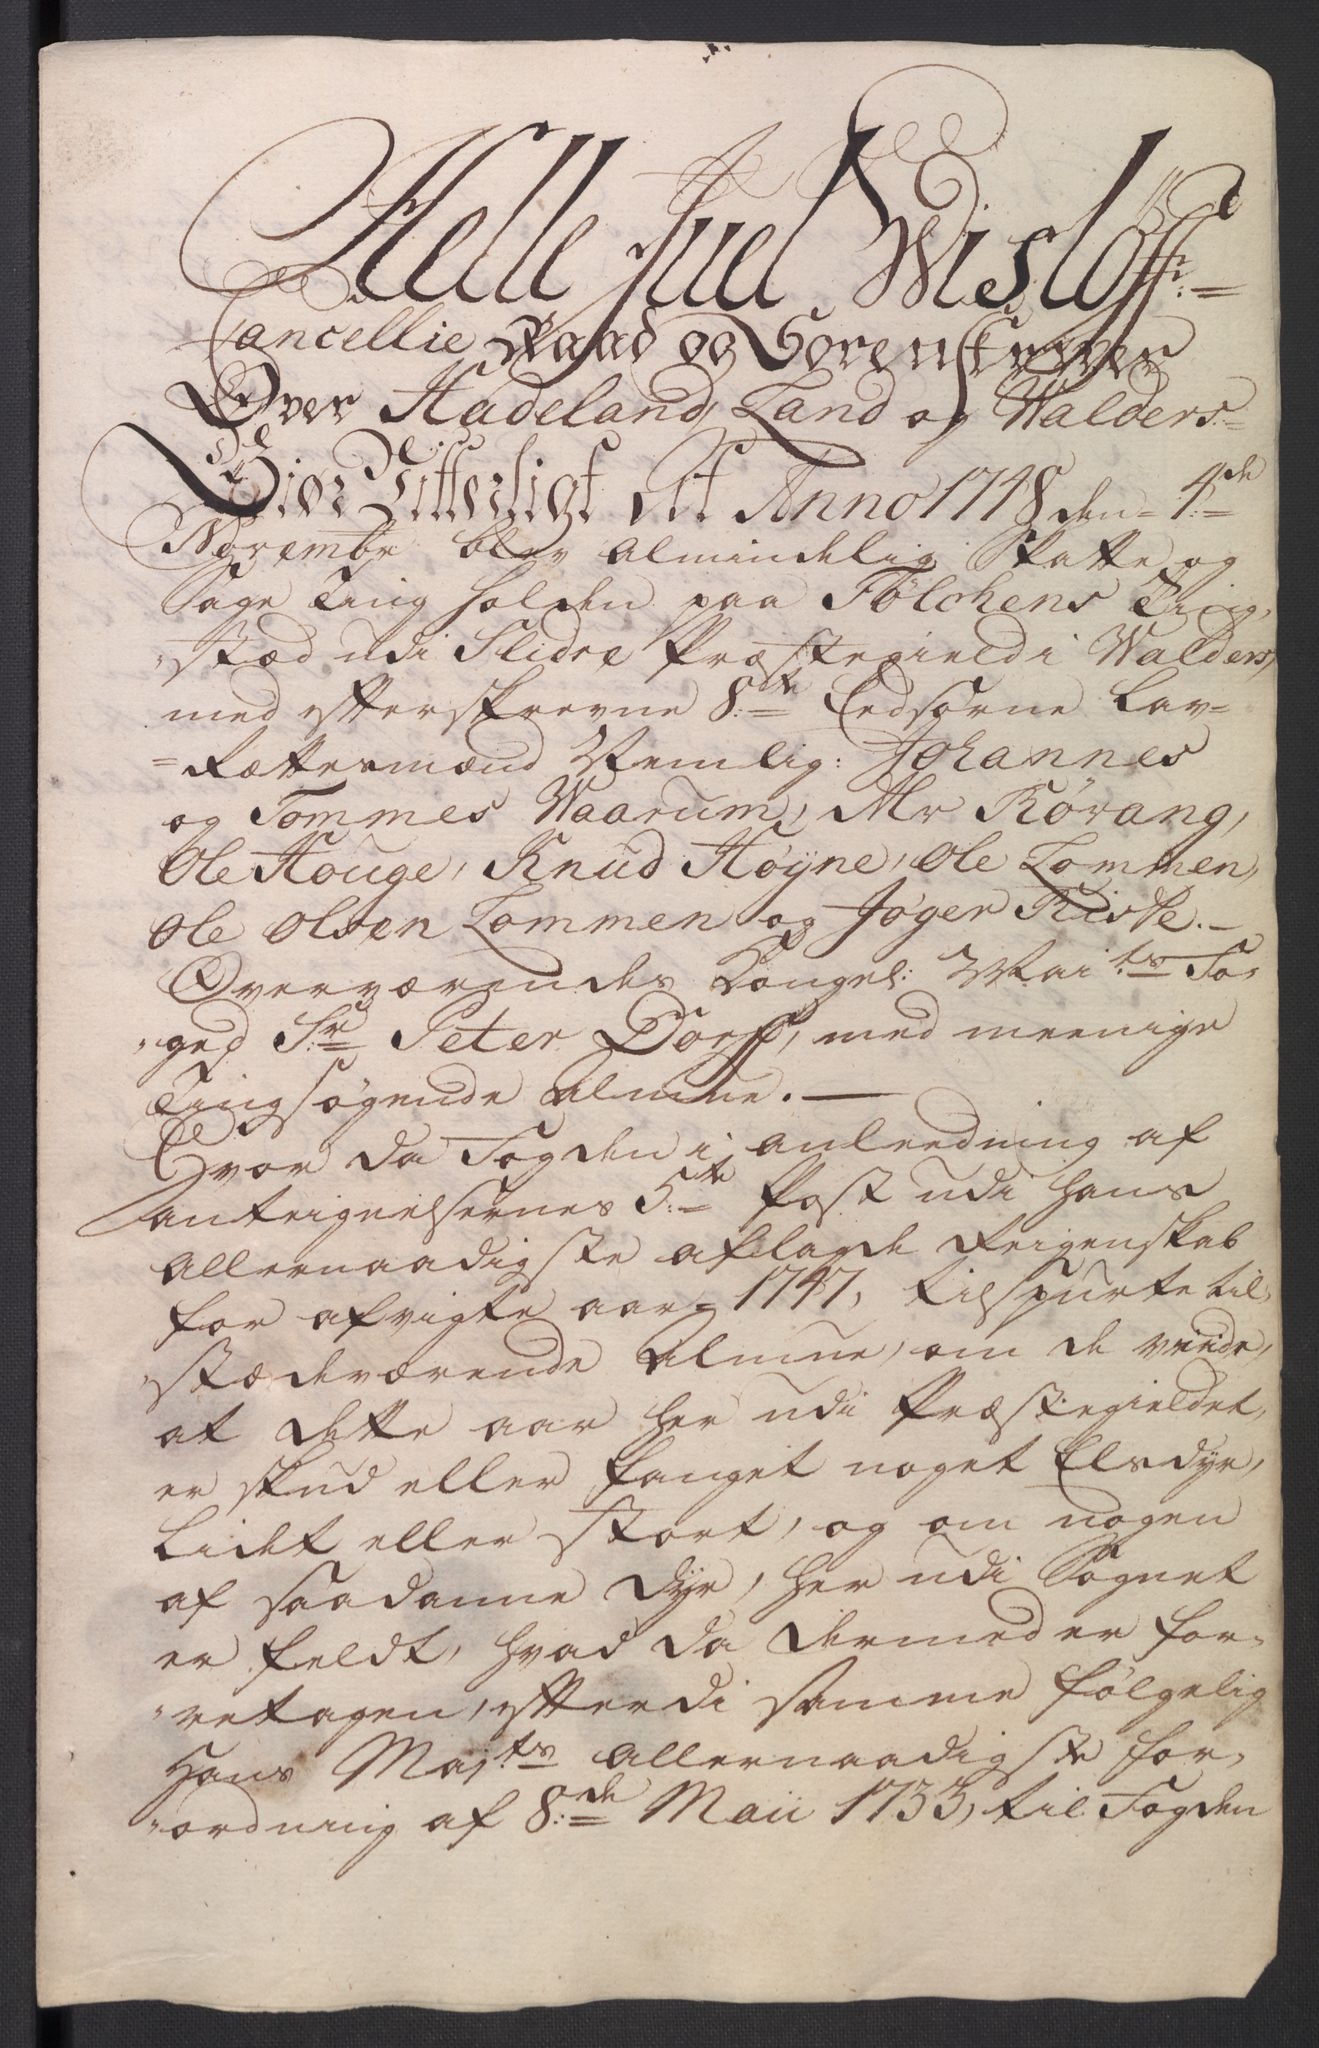 Helle Juel Wisløff
Cancellie Raad og Sorenskriver
Over Hadeland, Land og Walders
Giør Vitterligt At Anno 1748 den 4de
Novembr blev almindelig Skatte og
Sage Ting holden paa Fölchens Ting,
stæd udi Slidre Præstegield i Walders,
med efterskrevne 8te Eedsorne Lav=
=Rettesmænd Nemlig: Johannes
og Tommes Waarum, Mr Rörang,
Ole Houge, Knud Höÿne, Ole Lommen,
Ole Olsen Lommen og Jöger Riste.
Overværendes Kongel: Mai:ts Fo,
,,ged Sr Peter Dorff, med meenige
Tingsøgende Almue.
Hvor da Fogden i anleedning af
anteignelsernes 5te Post udi hans
allernaadigste aflagde Reigenskab
for afvigte aar 1747, tilspurte til,
,,stædeværende Almue, om de viide,
at dette aar her udi Præstegieldet,
er skud eller fanget noget Elsdyr,
Lidet eller stort, og om nogen
af saadanne dyr, her udi Sognet
er feldt, hvad da dermed er for,
,,retagen, efterdi samme følgelig
Hans Maj:ts allernaadigste for,
,,ordning af 8:de Maii 1733, til Fogden